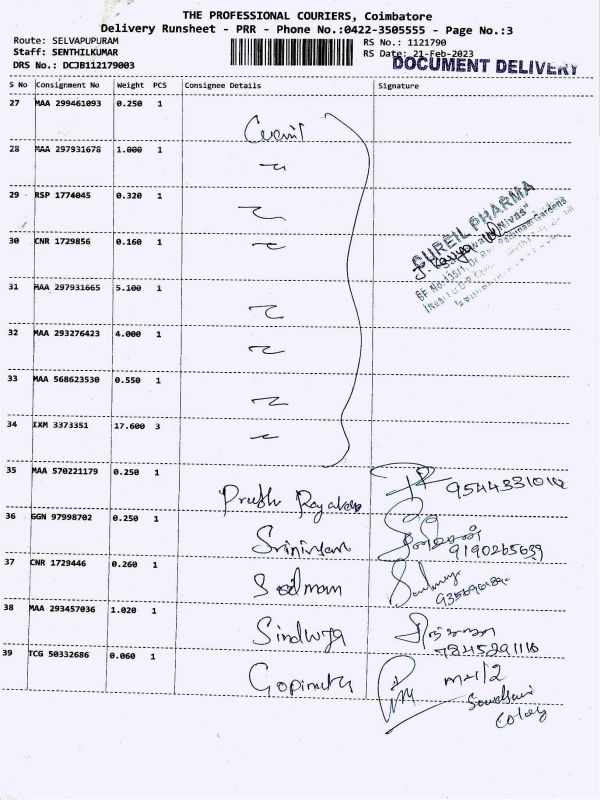 THE PROFESSIONAL COURIERS, Coimbatore
Delivery Runsheet - PRR - Phone No.:0422-3505555 - Page No.:3
Route: SELVAPUPURAM
RS No.: 1121790
Staff: SENTHILKUMAR
RS Date: 21-Feb-2023
DRS No.: DCJB112179003
DOCUMENT DELIVERY
S No Consignment No Weight PCS Consignee Details Signature
27 MAA 299461093 0.250 1
28 MAA 297931678 1.000 1
29 RSP 1774045 0.320 1
CUREIL PHARMA
30 CNR 1729856 0.160 1
31 MAA 297931665 5.100 1
32 MAA 293276423 4.000 1
33 MAA 568623530 0.550 1
34 IXM 3373351 17.600 3
35 MAA 570221179 0.250 1
36 GGN 97998702 0.250 1
Srinivasan
37 CNR 1729446 0.260 1
38 MAA 293457036 1.020 1
Sindhuja
7845291116
39 TCG 50332686 0.060 1
Gopinath